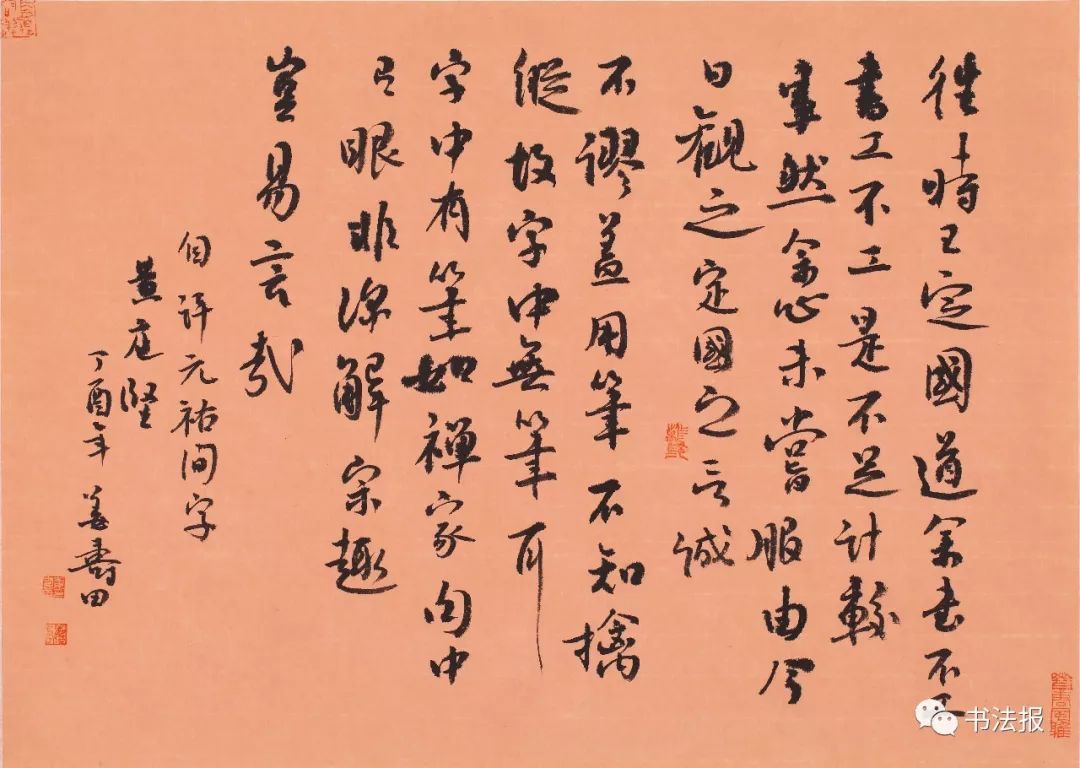 往時王定國道余書不工
書工不工是不足計較
事然余心未嘗服由今
日觀之定國之言誠
不謬蓋用筆不知擒
縱故字中無筆耳
字中有筆如禪家句中
有眼非深解宗趣
豈易言哉
自評元祐間字
黃庭堅
丁酉年 姜壽田
书法报